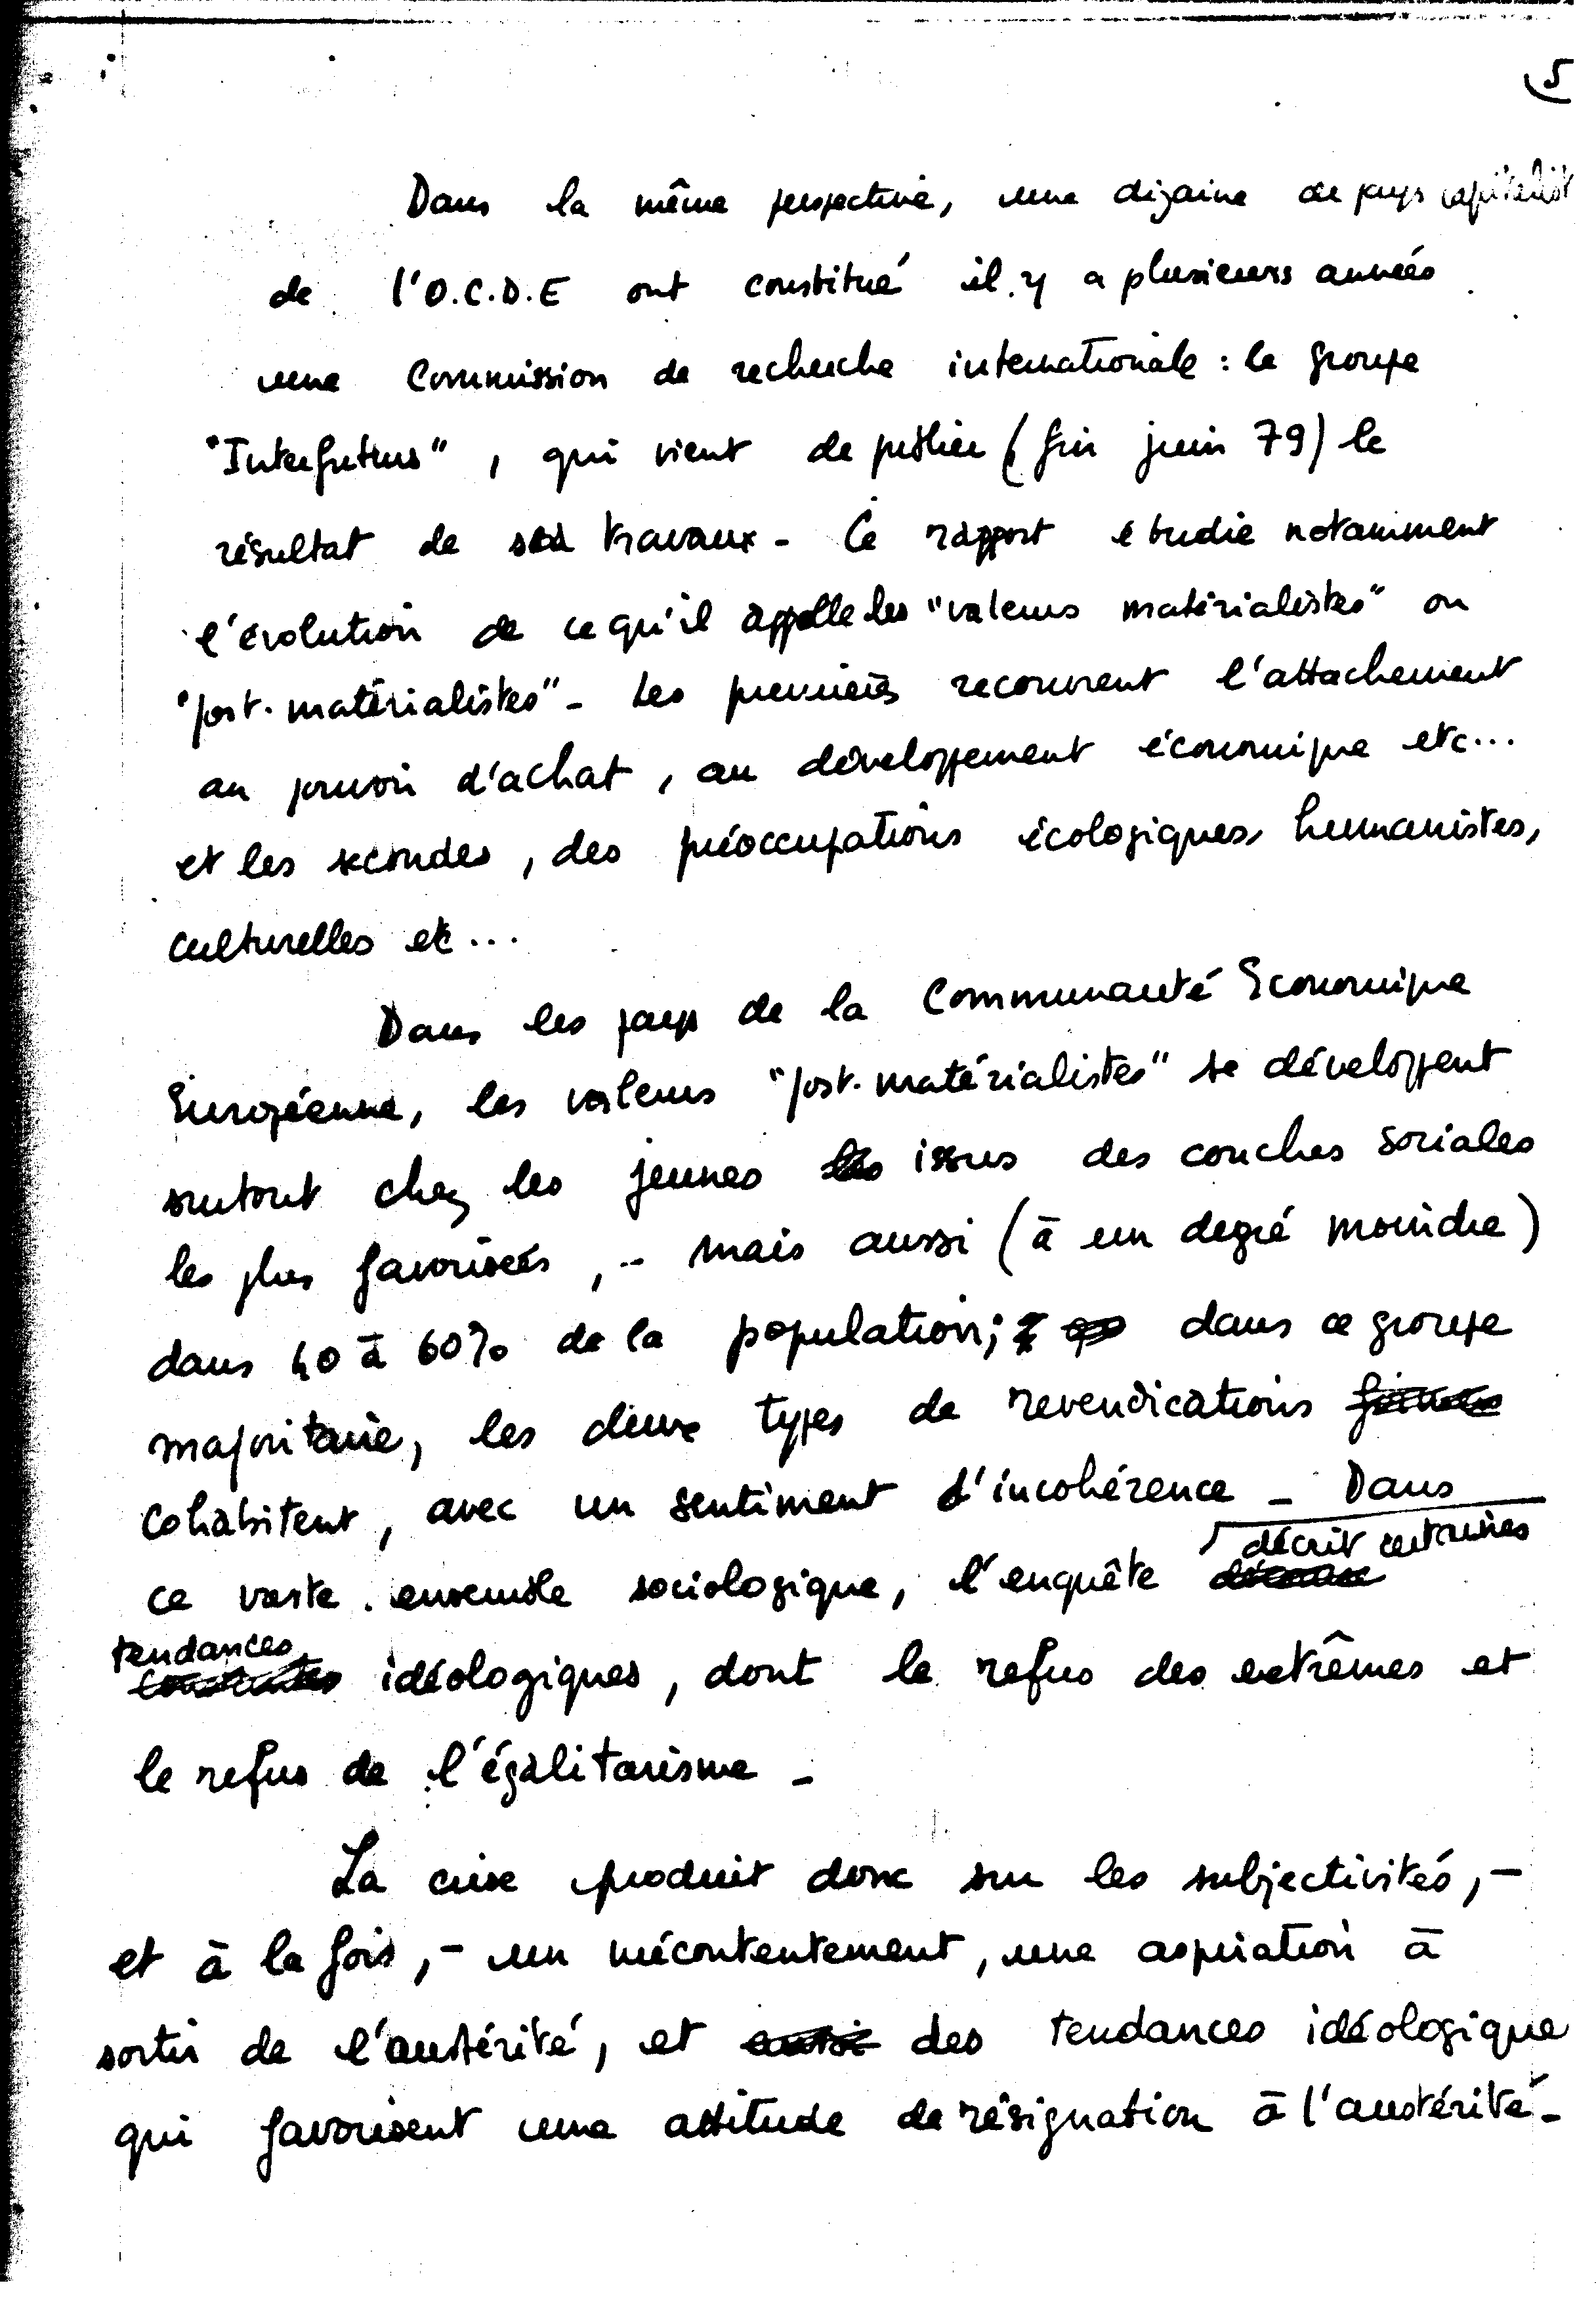 5
Dans la même perspective, une dizaine de pays capitalist
de l'O.C.D.E ont constitué il y a plusieurs années
une Commission de recherche internationale : le groupe
"Interfuturs", qui vient de publier (fin juin 79) le
résultat de ses travaux - Ce rapport étudie notamment
l'évolution de ce qu'il appelle les "valeurs matérialistes" ou
"post-matérialistes" - Les premières recouvrent l'attachement
au pouvoir d'achat, au développement économique etc...
et les secondes, des préoccupations écologiques, humanistes,
culturelles etc...
Dans les pays de la Communauté Economique
Européenne, les valeurs "post-matérialistes" se développent
surtout chez les jeunes issus des couches sociales
les plus favorisées, - mais aussi (à un degré moindre)
dans 40 à 60% de la population; dans ce groupe
majoritaire, les deux types de revendications
cohabitent, avec un sentiment d'incohérence - Dans
décrit certaines
ce vaste ensemble sociologique, l'enquête
tendances
idéologiques, dont le refus des extrêmes et
le refus de l'égalitarisme -
La crise produit donc sur les subjectivités, -
et à la fois, - un mécontentement, une aspiration à
sortir de l'austérité, et des tendances idéologique
qui favorisent une attitude de résignation à l'austérité -